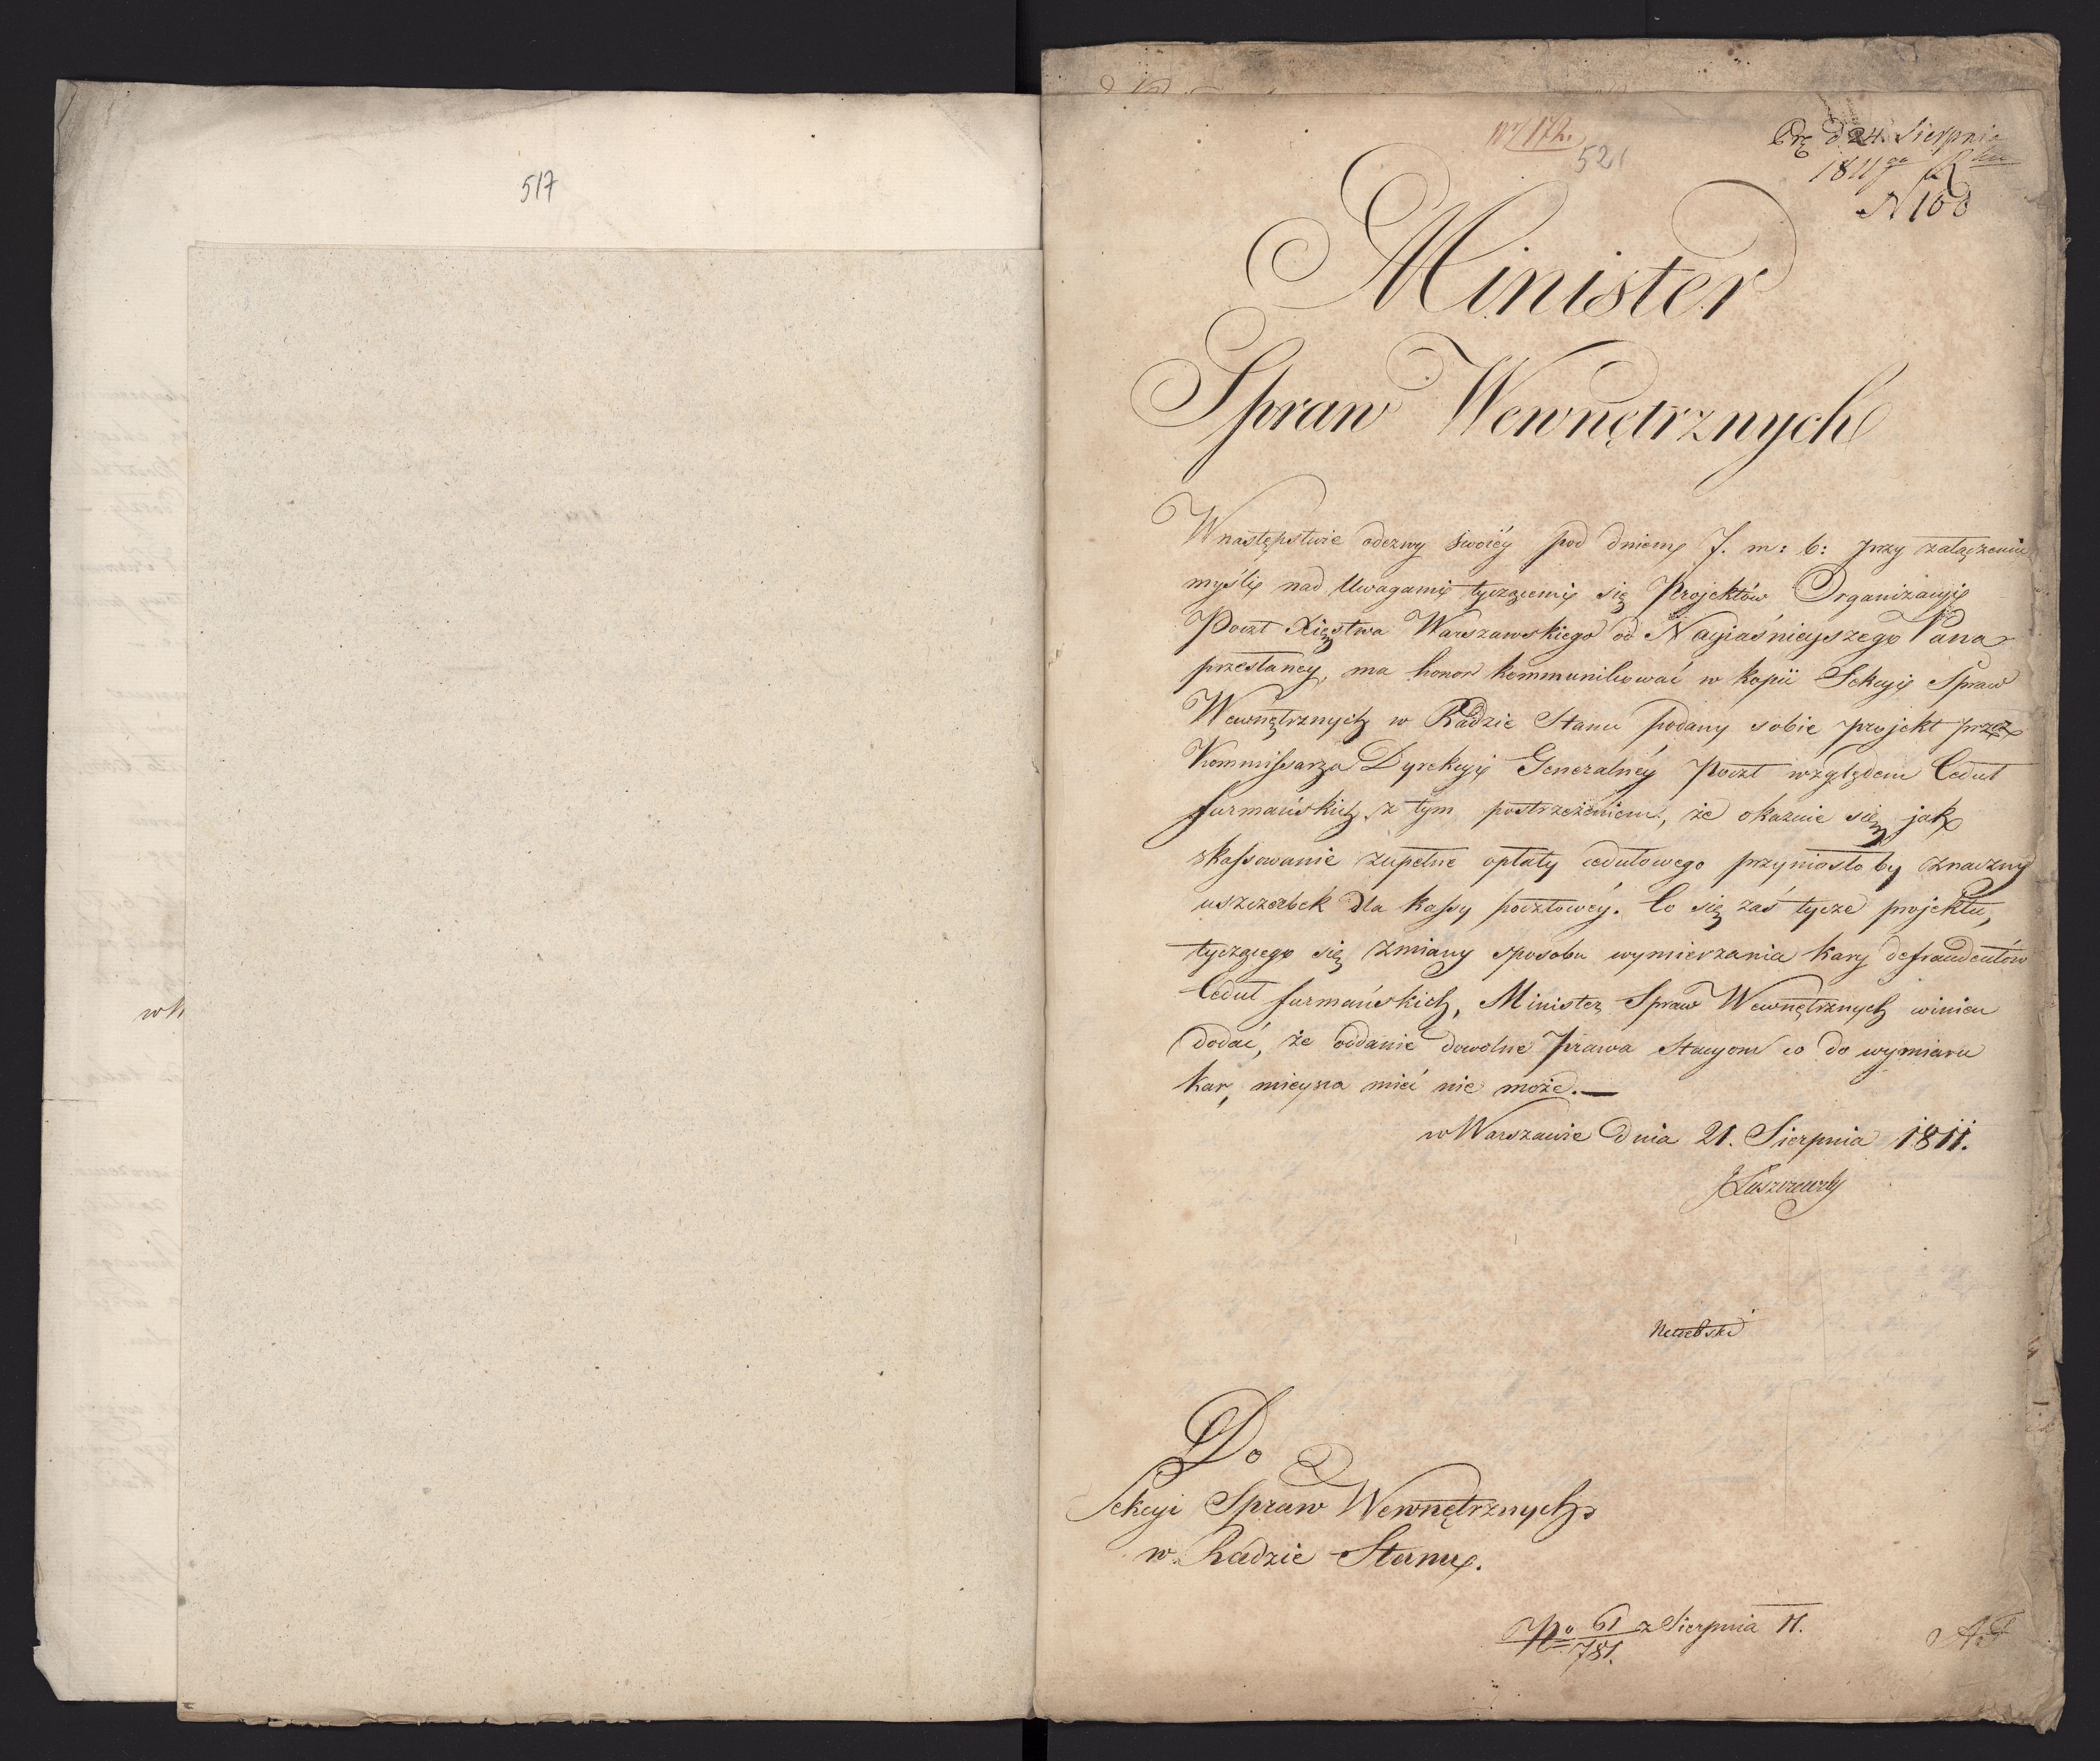 517
521
Prę d 24. Sierpnia
1811go Rku
N 168
Minister
Spraw Wewnętrznych
W następstwie odezwy swoiéy pod dniem 7. m: b: przy załączeniu
myśli nad Uwagami tyczącemi się Projektów Organizacyi
Poczt Xięstwa Warszawskiego od Nayiaśnieyszego Pana
przesłaney, ma honor kommunikować w kopii Sekcyi Spraw
Wewnętrznych w Radzie Stanu podany sobie projekt przez
Kommissarza Dyrekcyi Generalnéy Poczt względem Ceduł
furmańskich z tym postrzeżeniem, że okazuie się jak
skassowanie zupełne opłaty cedułowego przyniosło by znaczny
uszczerbek dla kassy pocztowéy. Co się zaś tycze projektu,
tyczącego się zmiany sposobu wymierzania kary defraudentów
Ceduł furmańskich, Minister Spraw Wewnętrznych winien
dodać, że oddanie dowolne prawa Stacyom co do wymiaru
kar, mieysca mieć nie może.—
w Warszawie dnia 21. Sierpnia 1811.
Do
Sekcyi Spraw Wewnętrznych
w Radzie Stanu.
No 61 z Sierpnia 11.
781.